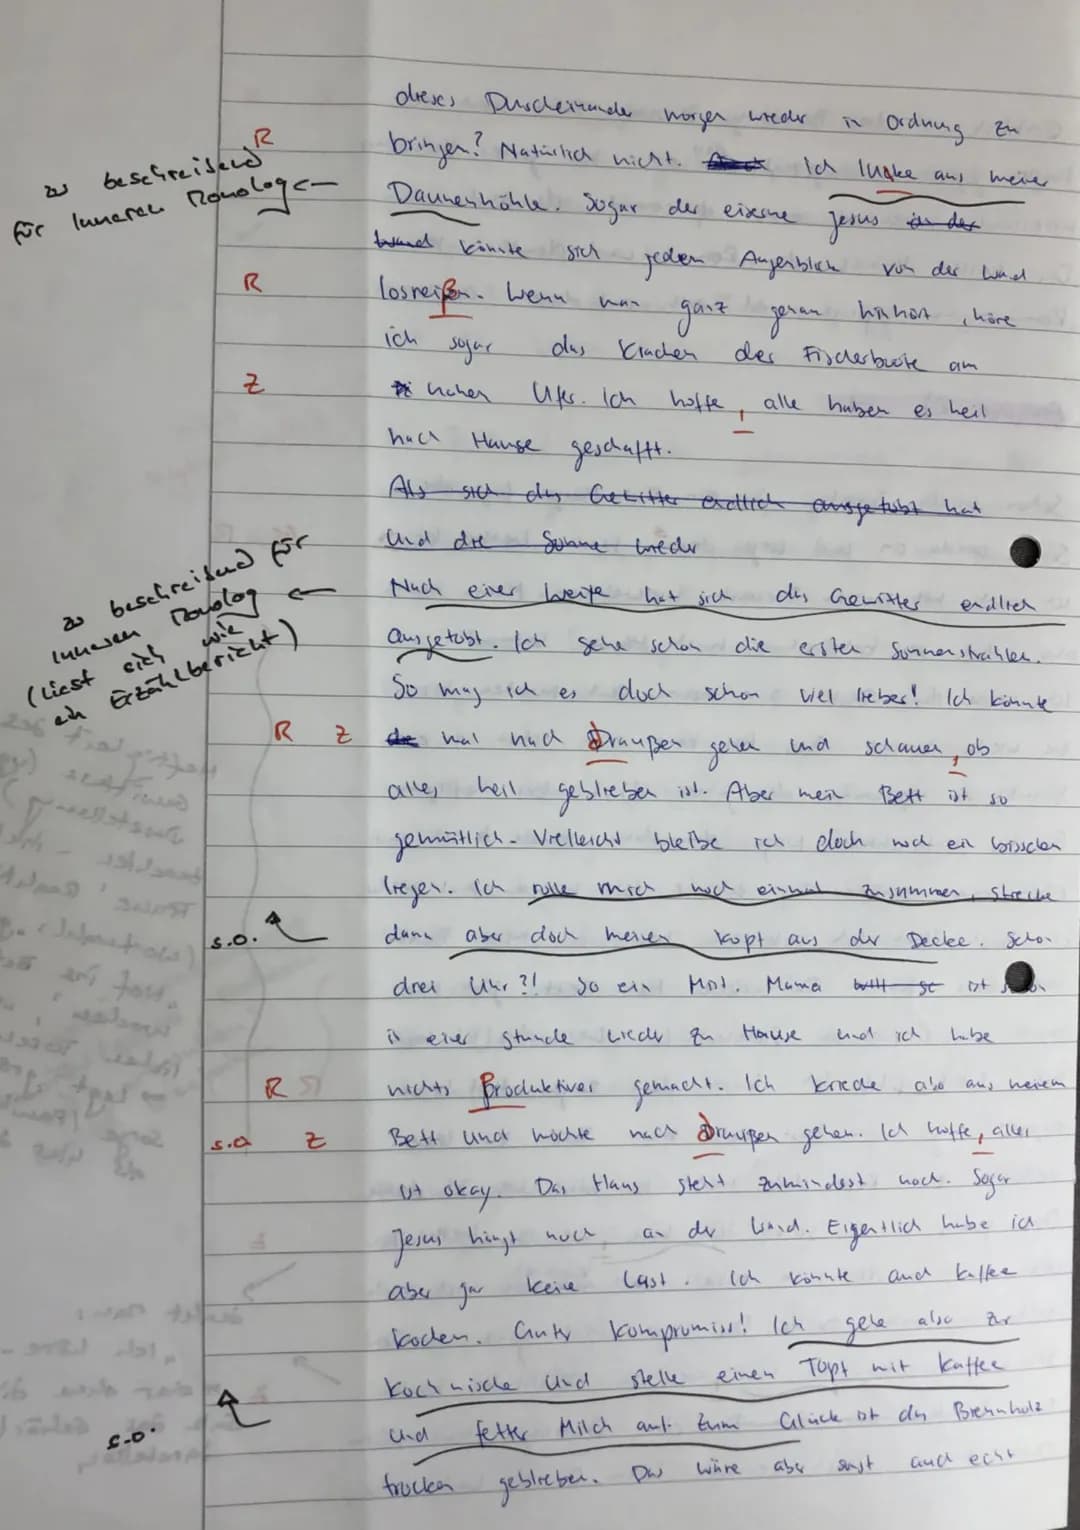 dieses Durcheinander morgen wieder in Ordnung zu
R
bringen? Natürlich nicht. Ich luake aus meiner
zu beschreibend
für Inneren Monolog ←
Daunenhöhle. Sogar der eiserne Jesus in der
Wand könnte sich jeden Augenblick von der Wand
R
losreißen. Wenn man ganz genau hinhört, höre
ich sogar das Krachen der Fischerboote am
Z
nahen Ufer. Ich hoffe, alle haben es heil
nach Hause geschafft.
Als sich das Gewitter endlich ausgetobt hat
und die Sonne wieder
zu beschreibend für
inneren Monolog ←
(liest sich wie
ein Erzählbericht)
Nach einer Weile hat sich das Gewitter endlich
ausgetobt. Ich sehe schon die ersten Sonnenstrahlen.
So mag ich es doch schon viel lieber! Ich könnte
R Z
mal nach draußen gehen und schauen, ob
alles heil geblieben ist. Aber mein Bett ist so
gemütlich. Vielleicht bleibe ich doch noch ein bisschen
liegen. Ich rolle mich noch einmal zusammen, strecke
s.o.
dann aber doch meinen Kopf aus der Decke. Schon
drei Uhr?! So ein Mist. Mama will ist schon
in einer Stunde wieder zu Hause und ich habe
R
nichts Produktives gemacht. Ich krieche also aus meinem
s.o. Z
Bett und möchte nach draußen gehen. Ich hoffe, alles
ist okay. Das Haus steht zumindest noch. Sogar
Jesus hängt noch an der Wand. Eigentlich habe ich
aber gar keine Lust. Ich könnte auch Kaffee
kochen. Guter Kompromiss! Ich gehe also zur
Kochnische und stelle einen Topf mit Kaffee
s.o.
und fetter Milch auf. Zum Glück ist das Brennholz
trocken geblieben. Das wäre aber sonst auch echt